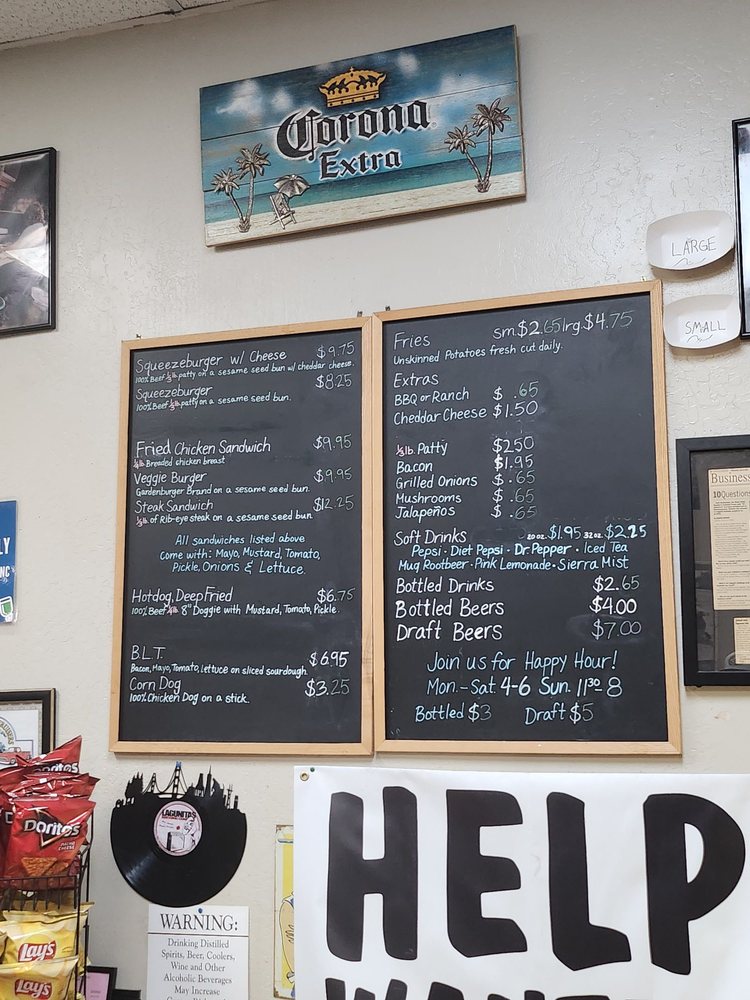 Corona
Extra
LARGE
SMALL
Squeezeburger w/ Cheese $9.75
100% Beef ⅓ lb patty on a sesame seed bun w/ cheddar cheese.
Squeezeburger $8.25
100% Beef ⅓ lb patty on a sesame seed bun.
Fried Chicken Sandwich $9.95
Breaded chicken breast
Veggie Burger $9.95
Gardenburger Brand on a sesame seed bun.
Steak Sandwich $12.25
of Rib-eye steak on a sesame seed bun
All sandwiches listed above
come with: Mayo, Mustard, Tomato,
Pickle, Onions & Lettuce.
Hotdog, Deep Fried $6.75
100% Beef 8" Doggie with Mustard, Tomato, Pickle.
B.L.T. $6.95
Bacon, Mayo, Tomato, Lettuce on sliced sourdough.
Corn Dog $3.25
100% Chicken Dog on a stick.
Fries sm. $2.65 lrg. $4.75
Unskinned Potatoes fresh cut daily.
Extras
BBQ or Ranch $ .65
Cheddar Cheese $1.50
⅓ lb. Patty $2.50
Bacon $1.95
Grilled Onions $ .65
Mushrooms $ .65
Jalapeños $ .65
Soft Drinks 20 oz. $1.95 32 oz. $2.25
Pepsi · Diet Pepsi · Dr Pepper · Iced Tea
Mug Rootbeer · Pink Lemonade · Sierra Mist
Bottled Drinks $2.65
Bottled Beers $4.00
Draft Beers $7.00
Join us for Happy Hour!
Mon.-Sat 4-6 Sun. 11³⁰-8
Bottled $3 Draft $5
Business
10 Questions
LY
NG
Doritos
NACHO
CHEESE
Lay's
Lay's
LAGUNITAS
WARNING:
Drinking Distilled
Spirits, Beer, Coolers,
Wine and Other
Alcoholic Beverages
May Increase
HELP